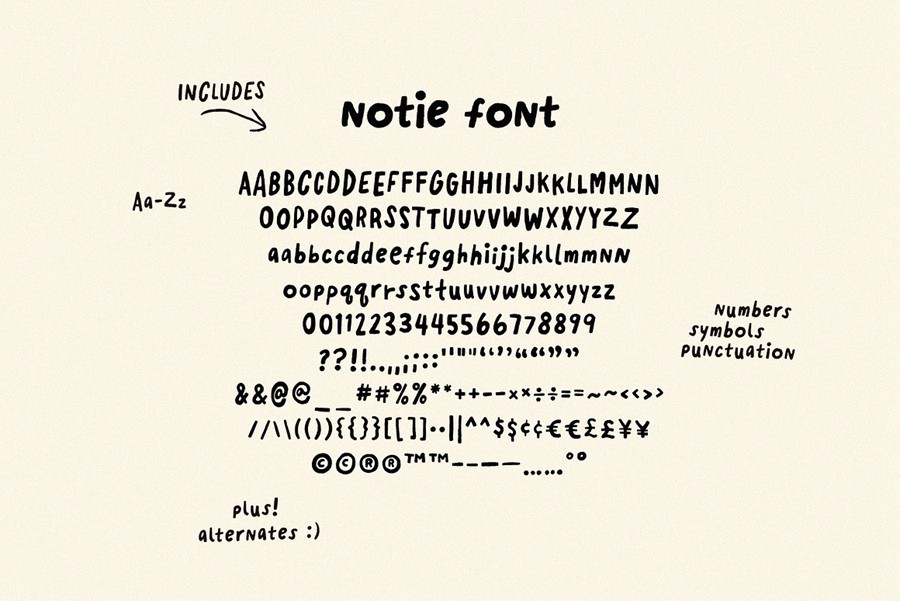 INCLUDES
Notie foNt
AABBCCDDEEFFFGGHHIIJJKKLLMMNN
Aa-Zz
OOPPQQRRSSTTUUVVWWXXYYZZ
aabbccddeeffgghhiijjkkllmmNN
ooppqqrrssttuuvvwwxxyyzz
00112233445566778899
Numbers
symbols
puNctuatioN
??!!..,,;;::""''“‘’”““””
&&@@__##%%**++--××÷÷==~~<<>>
//\\(()){{}}[[]]··||^^$$¢¢€€££¥¥
©©®®™™––——……°°
plus!
alterNates :)